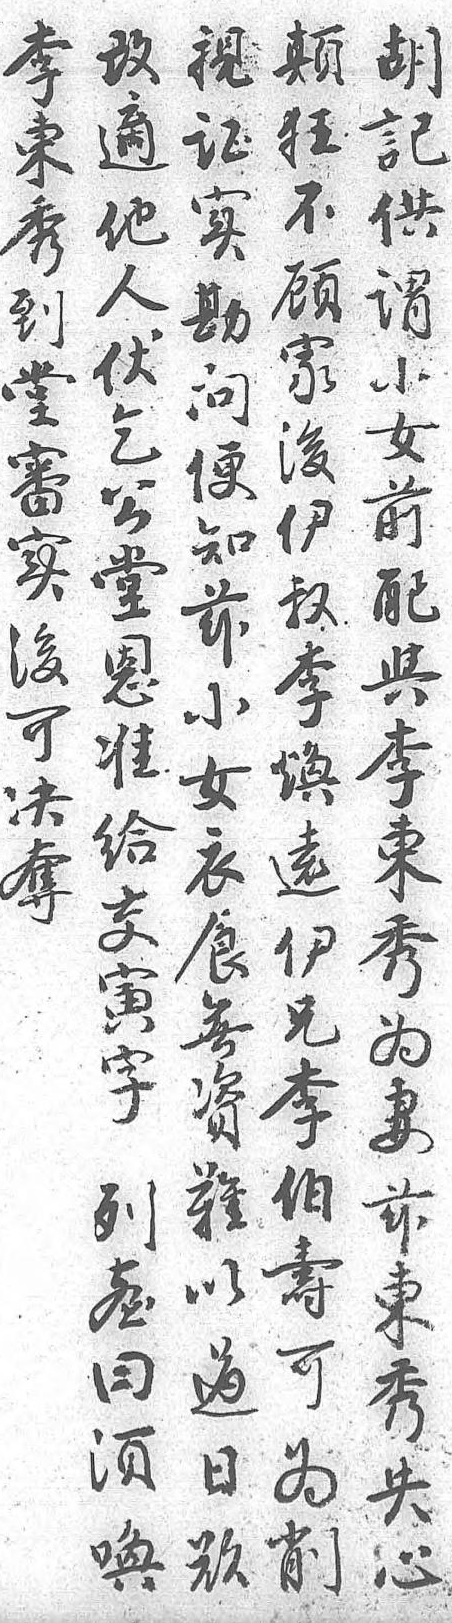 胡記供謂小女前配與李東秀为妻茲東秀失心
顛狂不顾家後伊叔李煥遠伊兄李伯壽可为削
視证实勘问便知茲小女衣食無資難以過日欵
改適他人伏乞公堂恩准给交寅字 列臺曰須喚
李東秀到堂審实後可决奪